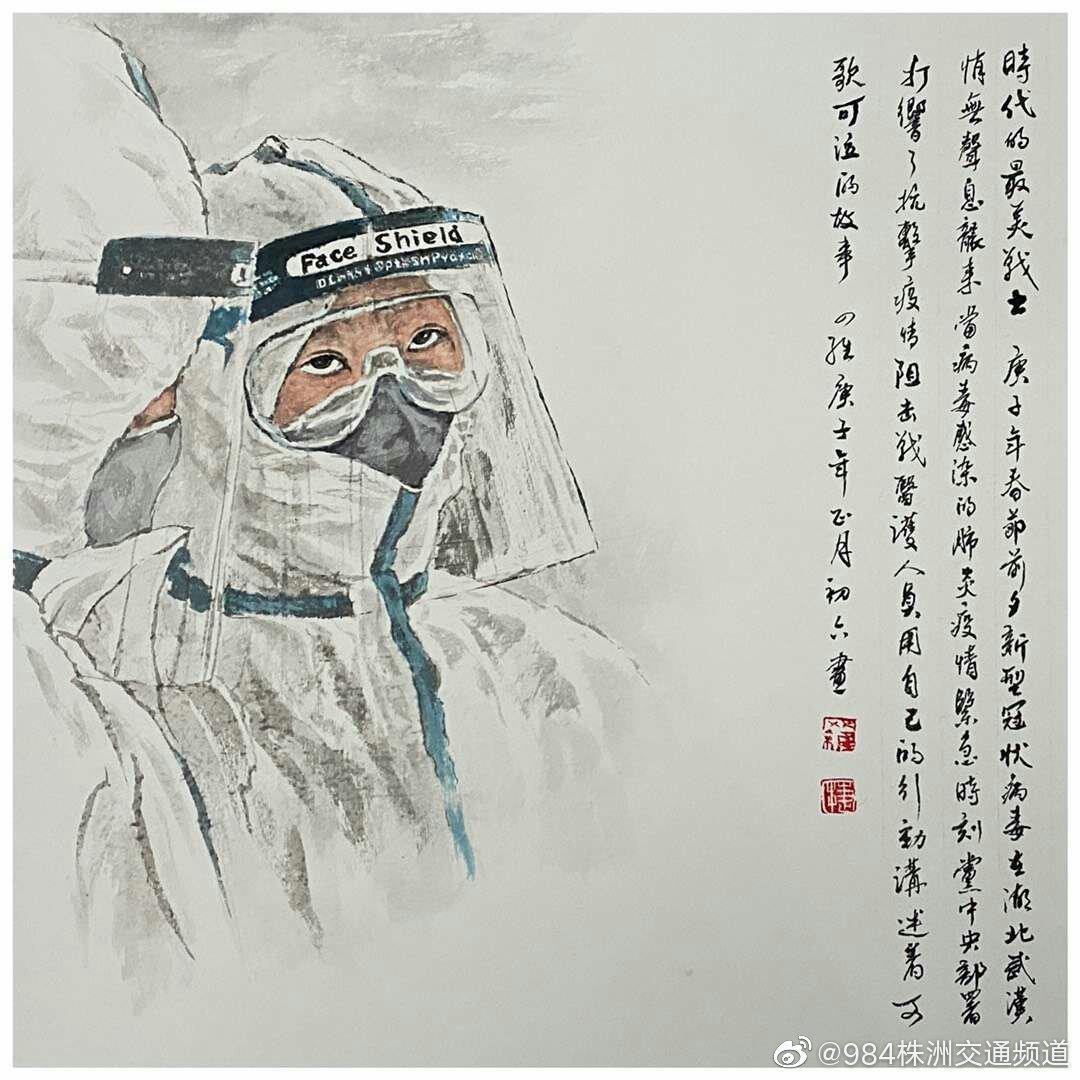 時代的最美戰士 庚子年春節前夕新型冠狀病毒在湖北武漢
悄無聲息襲来當病毒感染的肺炎疫情緊急時刻黨中央部署
打響了抗擊疫情阻击戰醫護人員用自己的行動講述着可
歌可泣的故事 四維庚子年正月初六畫
Face Shield
@984株洲交通频道